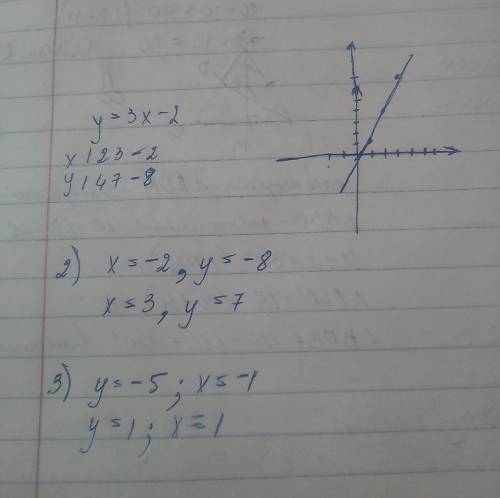 y = 3x - 2
x | 2 3 - 2
y | 4 7 - 8
2) x = -2, y = -8
x = 3, y = 7
3) y = -5 ; x = -1
y = 1 ; x = 1